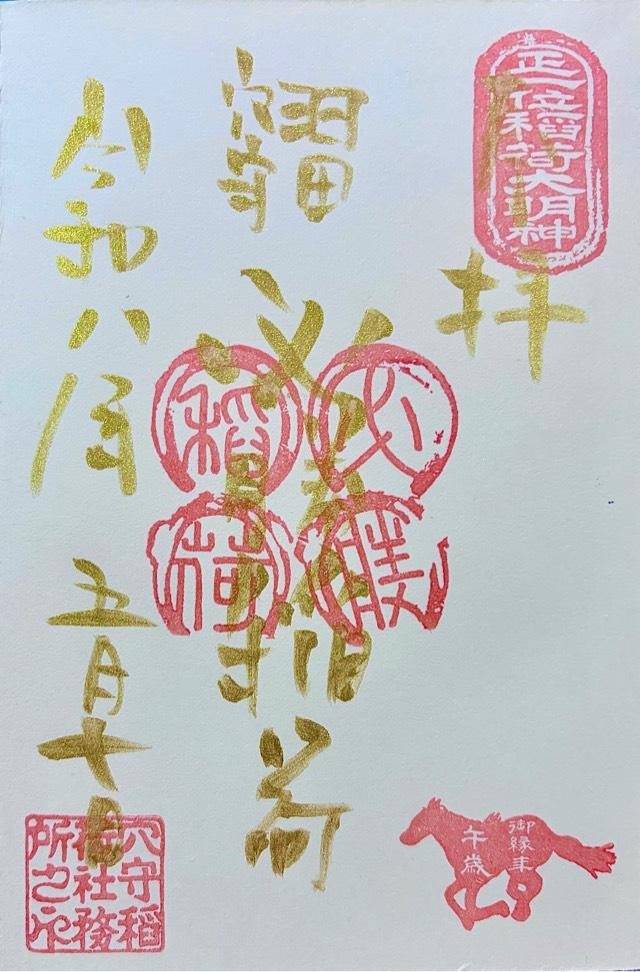 正一位稲荷大明神
奉拝
羽田
穴守
必勝稲荷
必勝
稲荷
令和八年 五月十日
穴守稲
荷社務
所之印
御縁年
午歳